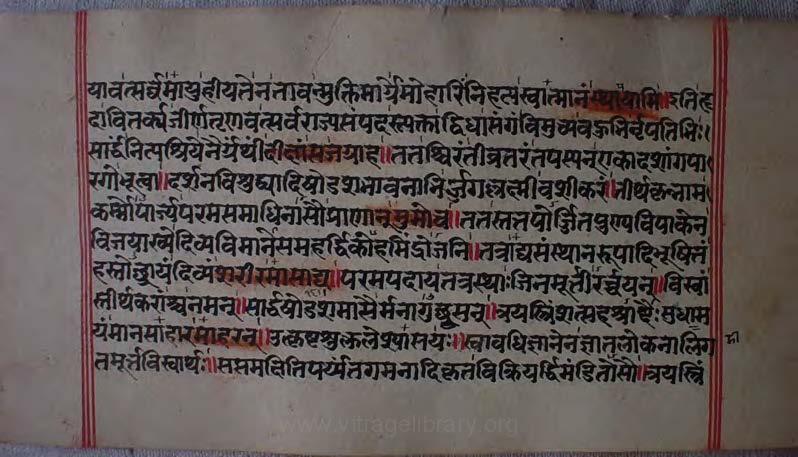 यावत्सर्वमायुर्हीयते न तावन्मुक्तिमार्ये मोहारिं निहत्य स्वात्मानं स्थापयामि॥इति हृ
दा वितर्क्य जीर्णतृणवत्सर्वराज्यसंपदस्त्यक्त्वा द्विधा संगं विमुच्य नृपतिभिः
सार्द्धं नित्य दीक्षां स जग्राह॥ततश्चिरं तीव्रतरं तपस्यन् एकादशांगपा
रगो भूत्वा॥दर्शनविशुद्ध्यादिषोडशभावनाभिर्जगल्लक्ष्मीवशीकरं॥तीर्थकृन्नाम
कर्म्मोपार्ज्य परमसमाधिनासौ प्राणान् मुमोच॥ततस्तत्तपोर्जितपुण्यविपाकेन
विजयाख्ये दिव्यविमाने स महर्द्धिकोहमिंद्रोजनि॥तत्राद्यसंस्थानरूपादिभूषितं
हस्तोच्छ्रायं दिव्यं शरीरमासाद्य॥परमपदाय तत्रस्थाः जिनमूर्तीरर्च्चयन्॥विस्वां
स्तीर्थकरांश्च नमन्॥सार्द्धषोडशमासैर्मनागुच्छ्वसन्॥त्रयस्त्रिंशत्सहस्राब्दैः सुधाम
यं मानसाहारमाहरन्॥उत्कृष्टशुक्ललेश्यासयः॥स्वावधिज्ञानेन ज्ञातलोकनालिग
तमूर्त्तविस्वार्थः॥सप्तमक्षितिपर्यंतगमनादिकृतविक्रियर्द्धिमंडितोसौ॥त्रयस्त्रिं
www.vitragelibrary.org